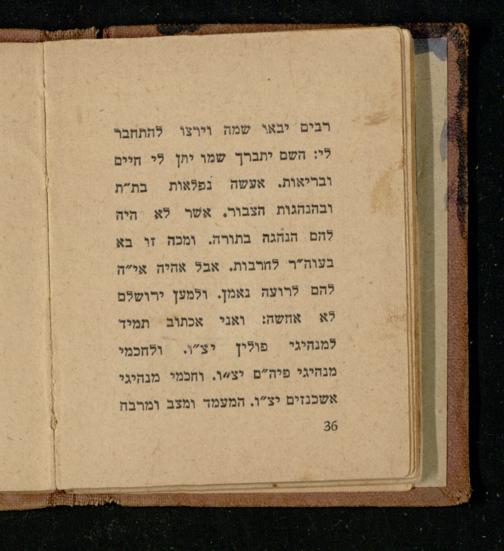 רבים יבאו שמה וירצו להתחבר
לי: השם יתברך שמו יתן לי חיים
ובריאות. אעשה נפלאות בת״ת
ובהנהגות הצבור. אשר לא היה
להם הנהגה בתורה. ומכה זו בא
בעוה״ר לחרבות. אבל אהיה אי״ה
להם לרועה נאמן. ולמען ירושלם
לא אחשה: ואני אכתוב תמיד
למנהיגי פולין יצ״ו. ולחכמי
מנהיגי פיה״ם יצ״ו. וחכמי מנהיגי
אשכנזים יצ״ו. המעמד ומצב ומרבח
36